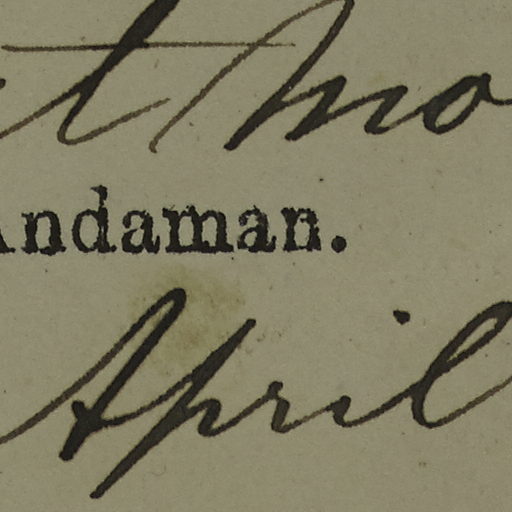 t Mo
Andaman.
April